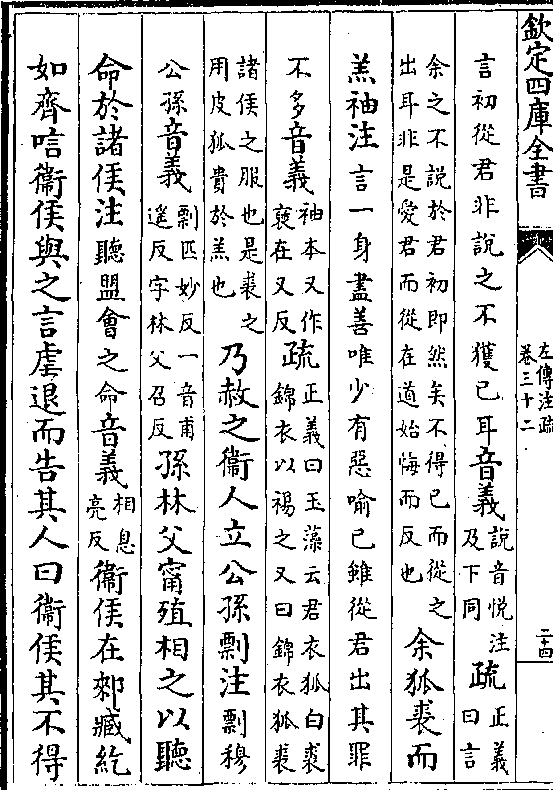 欽定四庫全書
左傳注疏
卷三十二
二十四
言初從君非說之不獲已耳音義說音悅注及下同疏正義曰言
余之不說於君初即然矣不得已而從之出耳非是愛君而從在道始悔而反也余狐裘而
羔袖注言一身盡善唯少有惡喻已雖從君出其罪
不多音義袖本又作褎在又反疏正義曰玉藻云君衣狐白裘錦衣以裼之又曰錦衣狐裘
諸侯之服也是裘之用皮狐貴於羔也乃赦之衞人立公孫剽注剽穆
公孫音義剽匹妙反一音甫遥反字林父召反孫林父甯殖相之以聽
命於諸侯注聽盟會之命音義相息亮反衞侯在郲臧紇
如齊唁衞侯與之言虐退而告其人曰衞侯其不得